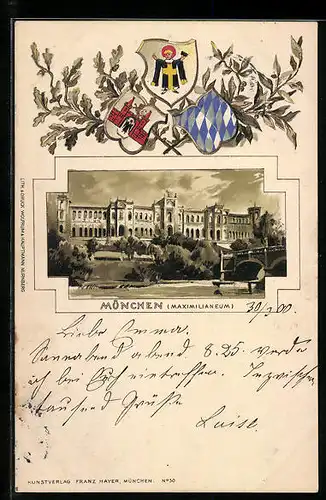 LITH. & DRUCK: WOLFRUM & HAUPTMANN, NÜRNBERG
MÜNCHEN (MAXIMILIANEUM)
30/3.00.
Liebe Emma.
Sonnabend abend 8.35 werde
ich bei Euch eintreffen. Inzwischen
tausend Grüße
Luise.
KUNSTVERLAG FRANZ MAYER, MÜNCHEN. No 50